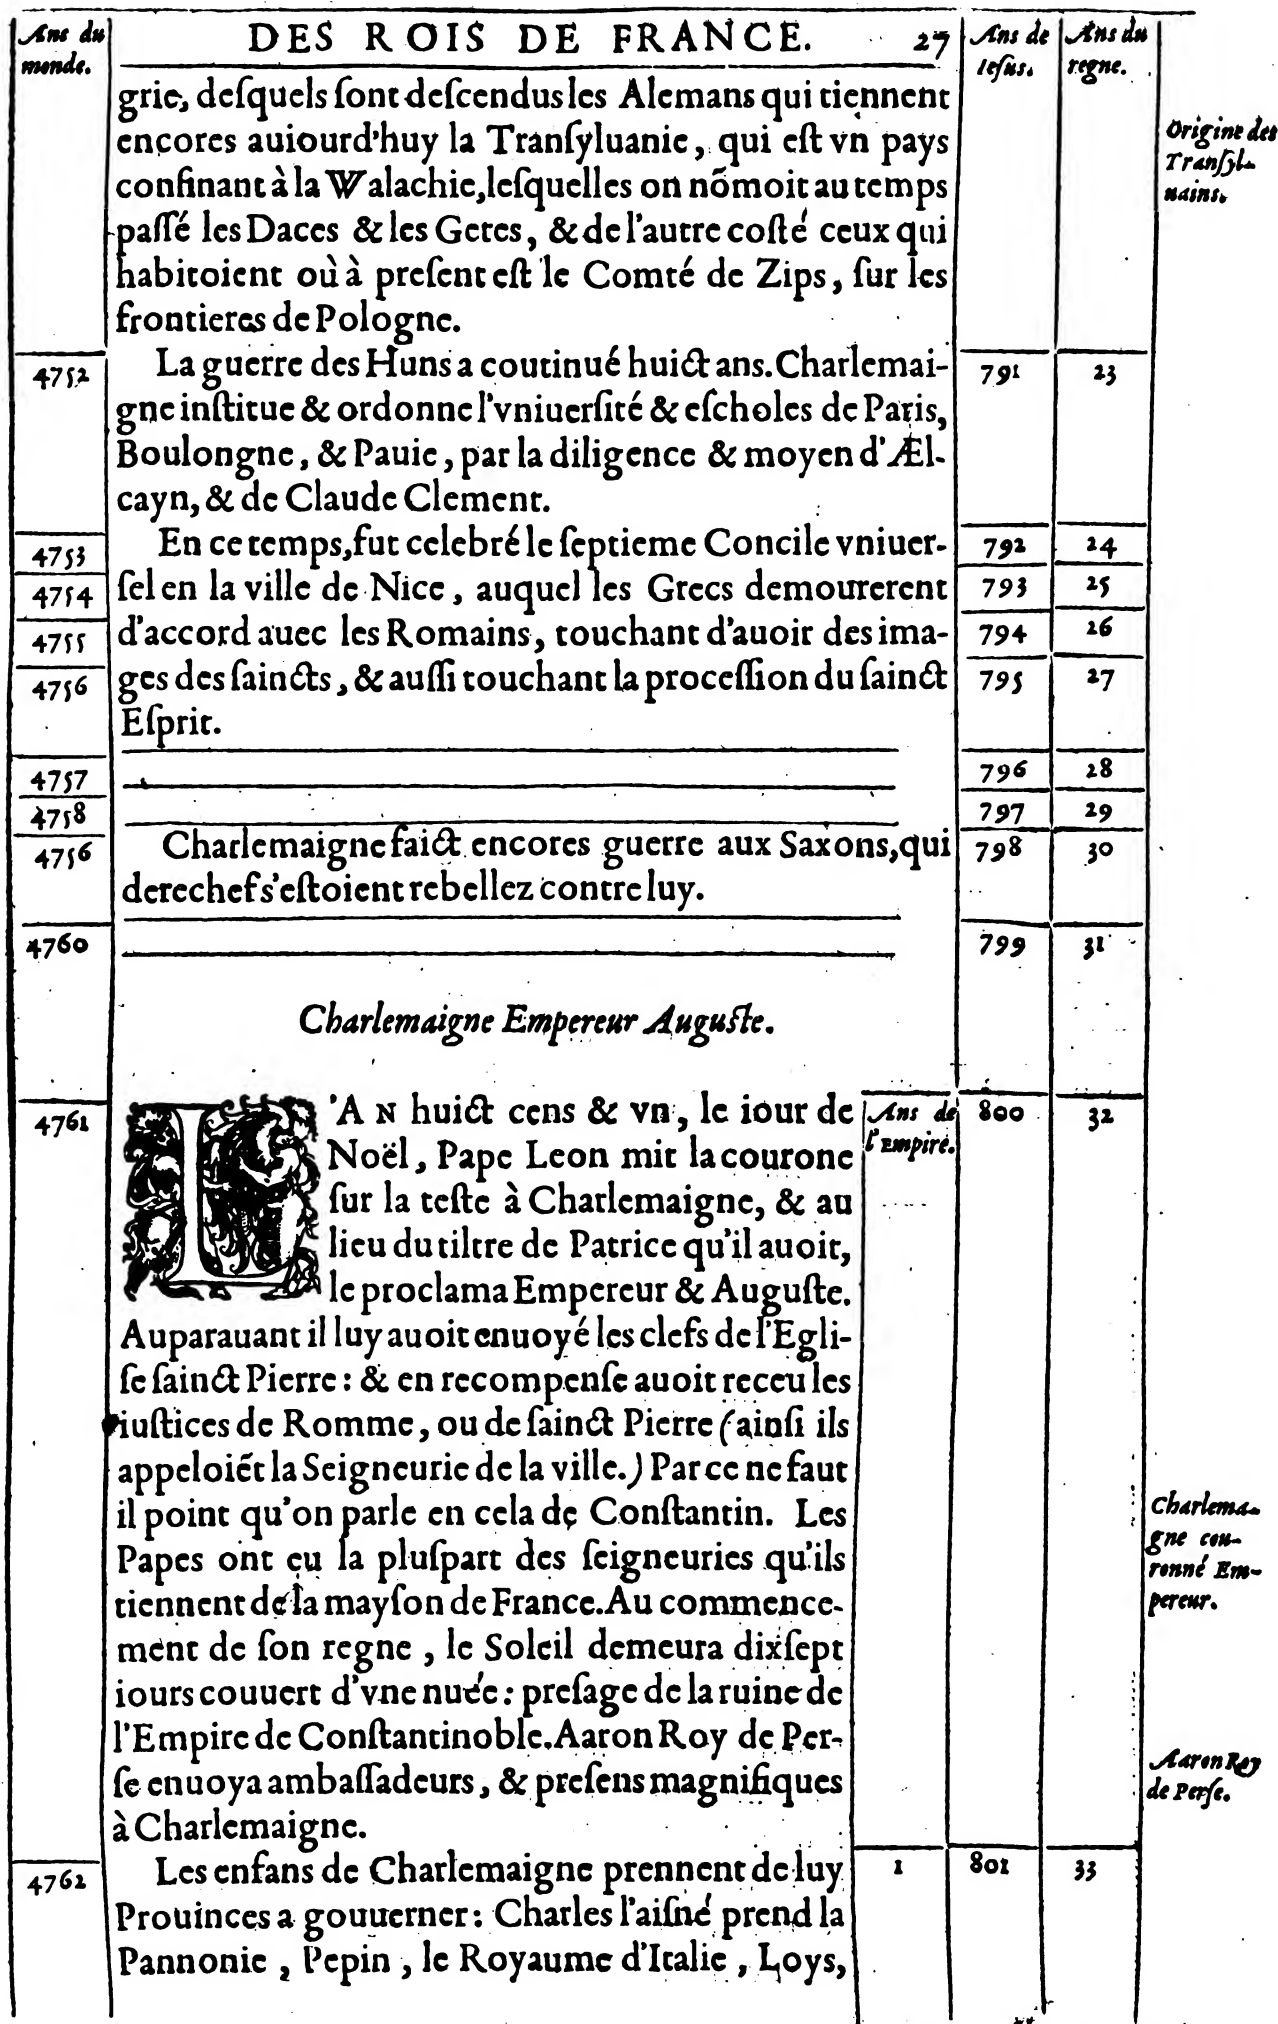 Ans du
monde.
DES ROIS DE FRANCE. 27
Ans de
Iesus.
Ans du
regne.
grie, deſquels ſont deſcendus les Alemans qui tiennent
encores auiourd'huy la Tranſyluanie, qui eſt vn pays
confinant à la Walachie, leſquelles on nõmoit au temps
paſſé les Daces & les Getes, & de l'autre coſté ceux qui
habitoient où à preſent eſt le Comté de Zips, ſur les
frontieres de Pologne.
Origine des
Tranſyl-
uains.
4752
La guerre des Huns a coutinué huict ans. Charlemai-
gne inſtitue & ordonne l'vniuerſité & eſcholes de Paris,
Boulongne, & Pauie, par la diligence & moyen d'Æl-
cayn, & de Claude Clement.
791 23
4753
En ce temps, fut celebré le ſeptieme Concile vniuer-
792 24
4754
ſel en la ville de Nice, auquel les Grecs demourerent
793 25
4755
d'accord auec les Romains, touchant d'auoir des ima-
794 26
4756
ges des ſaincts, & auſſi touchant la proceſſion du ſainct
795 27
Eſprit.
4757 796 28
4758 797 29
4756
Charlemaigne faict encores guerre aux Saxons, qui
798 30
derechef s'eſtoient rebellez contre luy.
4760 799 31
Charlemaigne Empereur Auguſte.
4761
L'AN huict cens & vn, le iour de
Ans de
l'Empire.
800 32
Noël, Pape Leon mit la courone
ſur la teſte à Charlemaigne, & au
lieu du tiltre de Patrice qu'il auoit,
le proclama Empereur & Auguſte.
Auparauant il luy auoit enuoyé les clefs de l'Egli-
ſe ſainct Pierre: & en recompenſe auoit receu les
iuſtices de Romme, ou de ſainct Pierre (ainſi ils
appeloiẽt la Seigneurie de la ville.) Par ce ne faut
il point qu'on parle en cela de Conſtantin. Les
Papes ont eu la pluſpart des ſeigneuries qu'ils
tiennent de la mayſon de France. Au commence-
ment de ſon regne, le Soleil demeura dixſept
iours couuert d'vne nuée: preſage de la ruine de
l'Empire de Conſtantinoble. Aaron Roy de Per-
ſe enuoya ambaſſadeurs, & preſens magnifiques
à Charlemaigne.
Charlema-
gne cou-
ronné Em-
pereur.
Aaron Roy
de Perſe.
4762
Les enfans de Charlemaigne prennent de luy
1 801 33
Prouinces a gouuerner: Charles l'aiſné prend la
Pannonie, Pepin, le Royaume d'Italie, Loys,